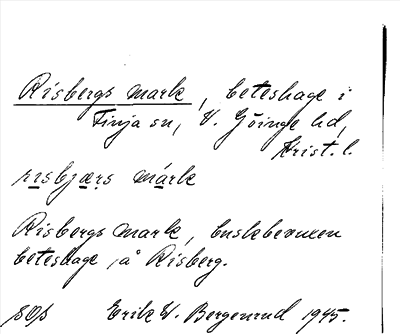 Risbergs mark, beteshage i
Finja sn, V. Göinge hd,
Krist. l.
risbjærs márk
Risbergs mark, buskbevuxen
beteshage å Risberg.
Erik W. Bergenrud 1945.